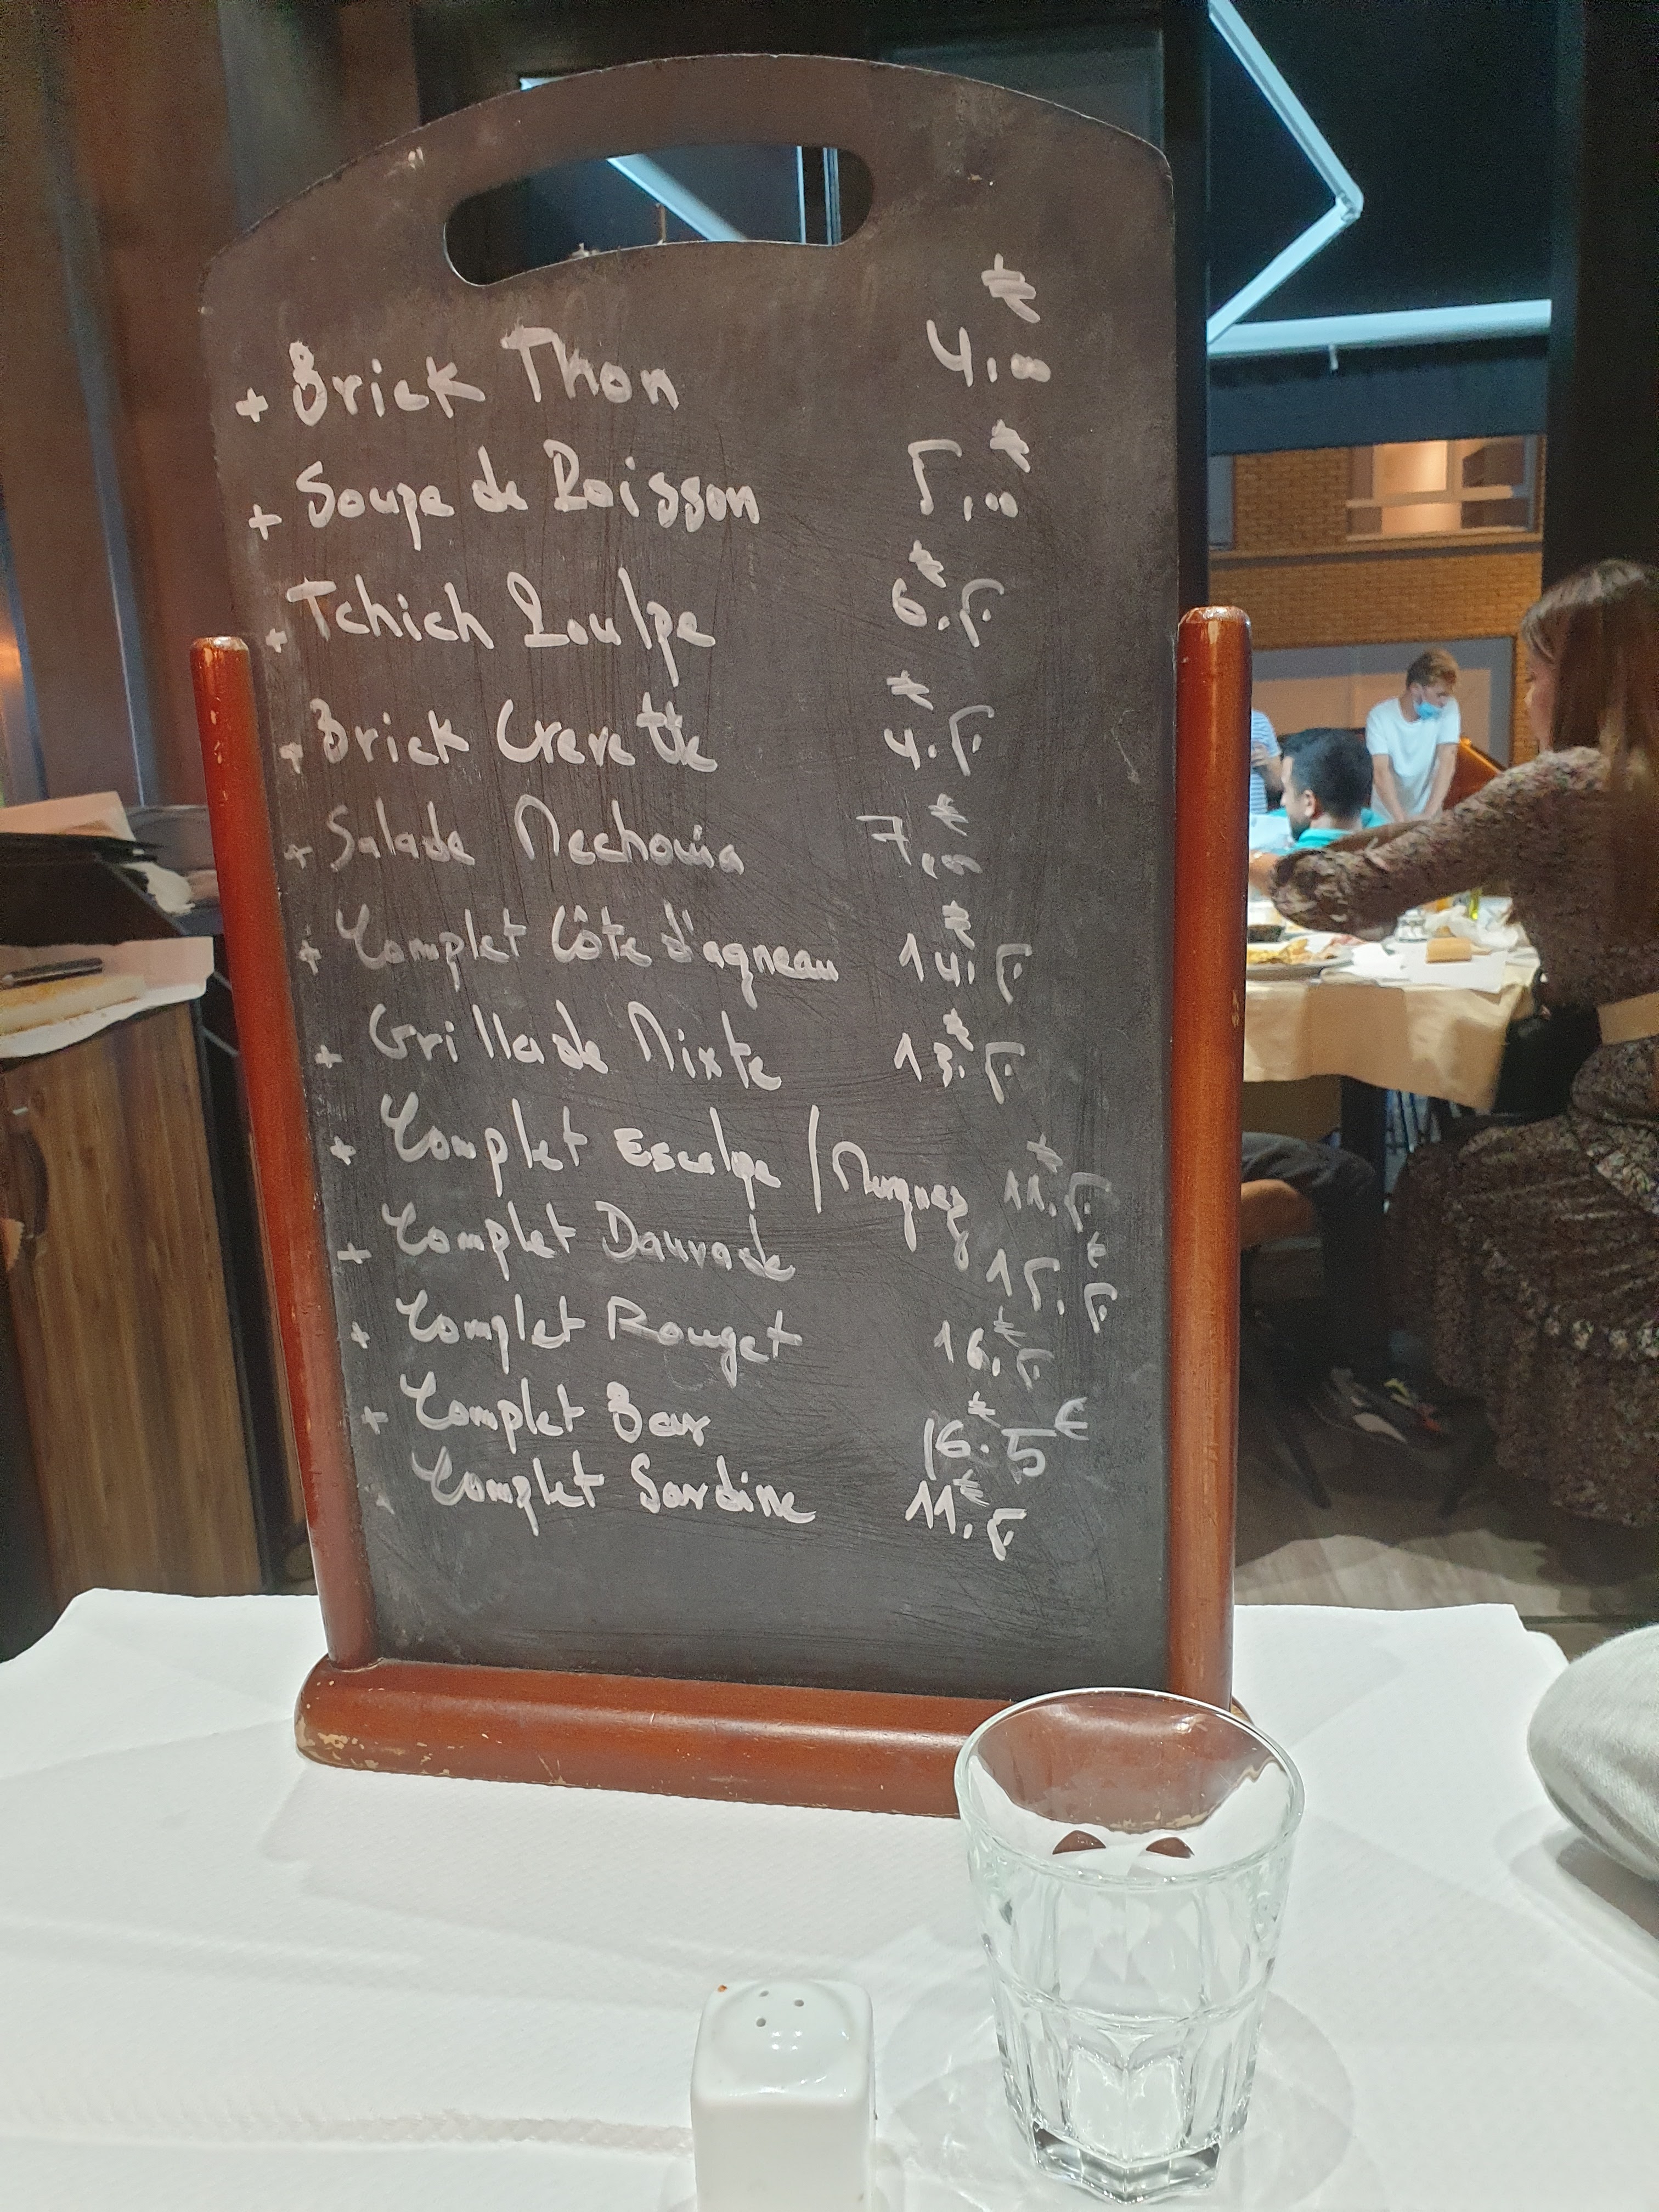 + Brick Thon 4,00 €
+ Soupe de Poisson 5,00 €
+ Tchich Poulpe 6.5 €
+ Brick Crevette 4.5 €
+ Salade Mechouia 7,00 €
+ Complet Côte d'agneau 14.5 €
+ Grillade Mixte 13.5 €
+ Complet Escalpe / Merguez 11.5 €
+ Complet Daurade 15.5 €
+ Complet Rouget 16.5 €
+ Complet Bar 16.5 €
+ Complet Sardine 11.5 €